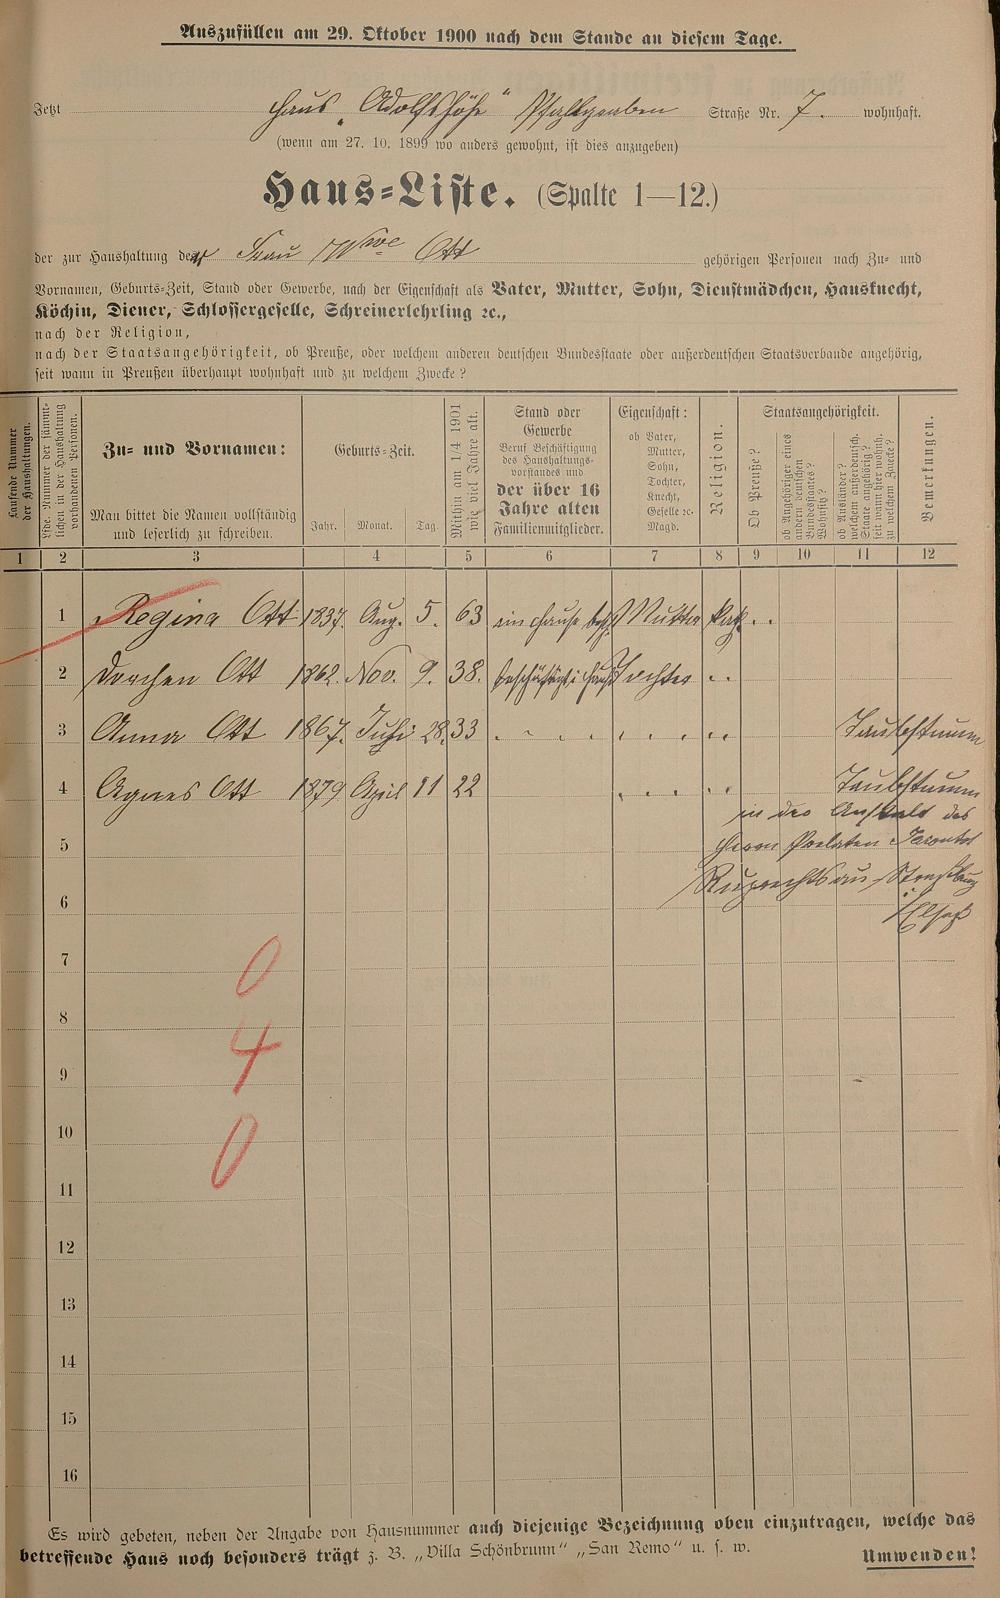 Auszufüllen am 29. Oktober 1900 nach dem Stande an diesem Tage.
Jetzt Haus „Adolfshöhe" Pfahlgraben Straße Nr. 7. wohnhaft.
(wenn am 27. 10. 1899 wo anders gewohnt, ist dies anzugeben)
Haus-Liste. (Spalte 1—12.)
der zur Haushaltung der Frau Wwe Ott gehörigen Personen nach Zu- und
Vornamen, Geburts-Zeit, Stand oder Gewerbe, nach der Eigenschaft als Vater, Mutter, Sohn, Dienstmädchen, Hausknecht,
Köchin, Diener, Schlossergeselle, Schreinerlehrling ꝛc.,
nach der Religion,
nach der Staatsangehörigkeit, ob Preuße, oder welchem anderen deutschen Bundesstaate oder außerdeutschen Staatsverbande angehörig,
seit wann in Preußen überhaupt wohnhaft und zu welchem Zwecke?
Laufende Nummer
der Haushaltungen.
Lfde. Nummer der sämmt-
lichen in der Haushaltung
vorhandenen Personen.
Zu- und Vornamen:
Man bittet die Namen vollständig
und leserlich zu schreiben.
Geburts-Zeit.
Jahr. Monat. Tag.
Mithin am 1/4 1901
wie viel Jahre alt.
Stand oder
Gewerbe
Beruf Beschäftigung
des Haushaltungs-
vorstandes und
der über 16
Jahre alten
Familienmitglieder.
Eigenschaft:
ob Vater,
Mutter,
Sohn,
Tochter,
Knecht,
Geselle ꝛc.
Magd.
Religion.
Staatsangehörigkeit.
Ob Preuße?
ob Angehöriger eines
andern deutschen
Bundesstaates?
Wohnsitz?
ob Ausländer?
welchem außerdeutsch.
Staate angehörig?
seit wann hier wohnh.
zu welchem Zwecke?
Bemerkungen.
1 2 3 4 5 6 7 8 9 10 11 12
1 Regina Ott 1837. Aug. 5. 63 im Hause besch. Mutter kath. "
2 Dorchen Ott 1862. Nov. 9. 38. beschäftigt i. Hause Tochter "
3 Anna Ott 1867. Juli 28. 33 " " " " " Taubstumm
4 Agnes Ott 1879 April 11 22 " " " Taubstumm
in der Anstalt des
5 Herrn Prelaten
Ruprechtsau Straßburg
6 i/Elsaß
7
0
8
4
9
10
0
11
12
13
14
15
16
Es wird gebeten, neben der Angabe von Hausnummer auch diejenige Bezeichnung oben einzutragen, welche das
betreffende Haus noch besonders trägt z. B. „Villa Schönbrunn" „San Remo" u. s. w. Umwenden!